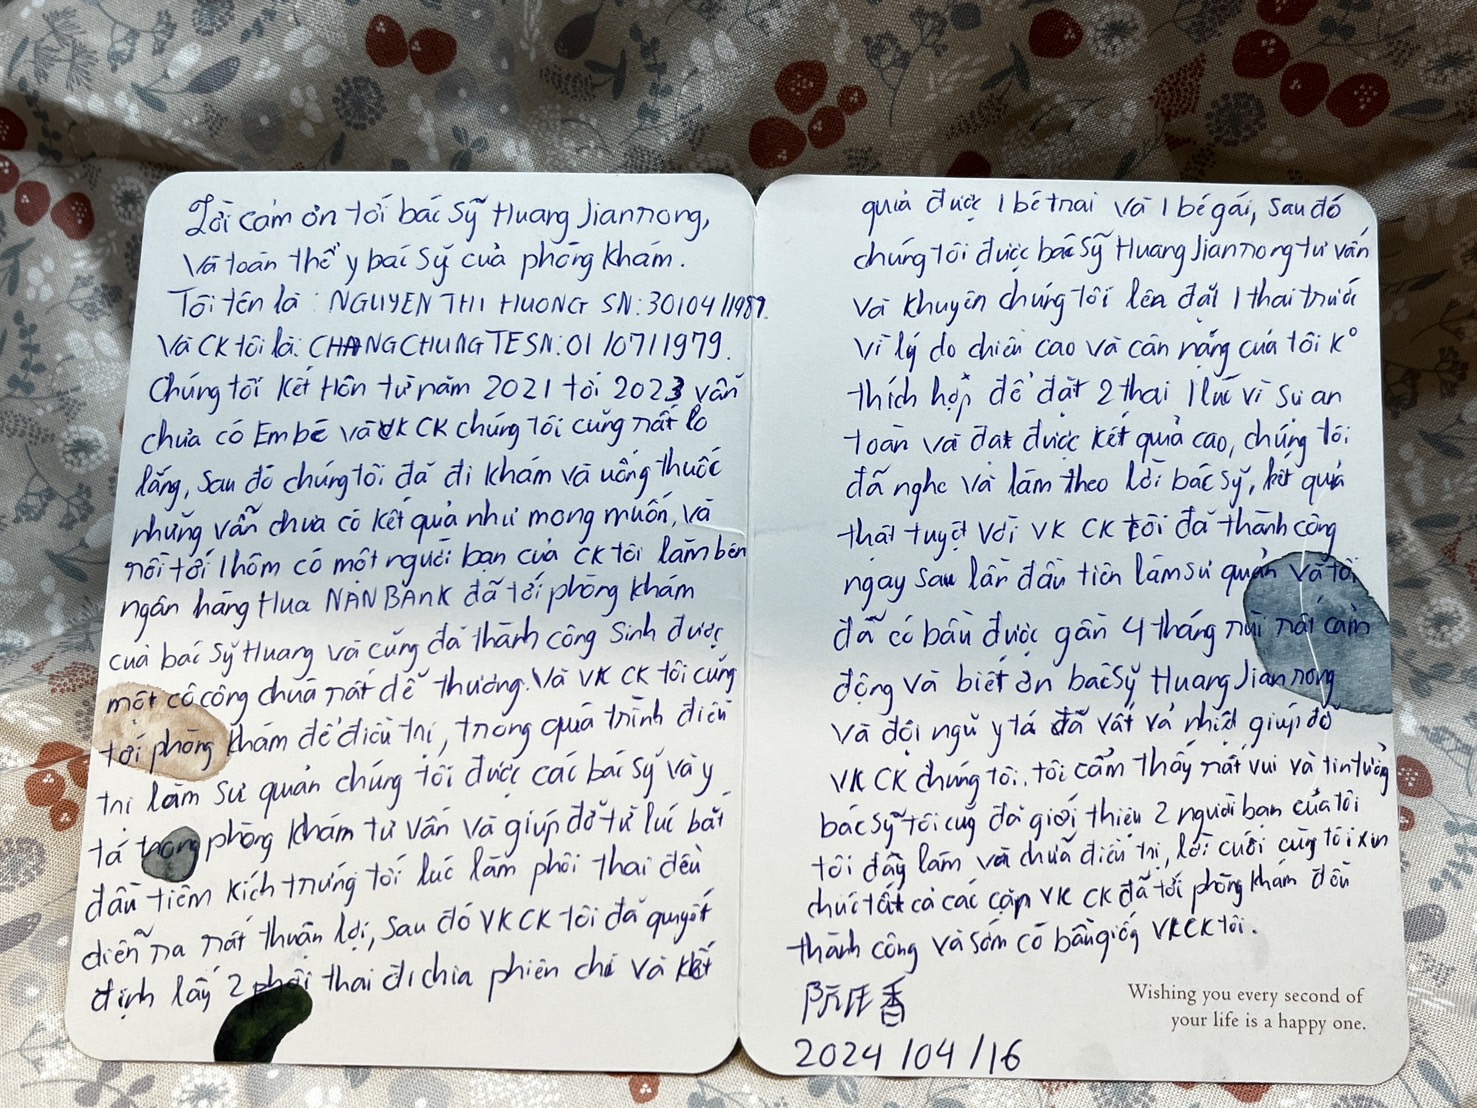 Lời cảm ơn tới bác sỹ Huang Jianrong,
Và toàn thể y bác sỹ của phòng khám.
Tôi tên là: NGUYEN THI HUONG SN: 30/04/1987.
Và CK tôi là: CHANG CHUNG TE SN: 01/07/1979.
Chúng tôi kết Hôn từ năm 2021 tới 2023 vẫn
chưa có Em bé và VK CK chúng tôi cũng rất lo
lắng, sau đó chúng tôi đã đi khám và uống thuốc
nhưng vẫn chưa có kết quả như mong muốn, và
rồi tới 1 hôm có một người bạn của CK tôi làm bên
ngân hàng Hua NAN BANK đã tới phòng khám
của bác sỹ Huang và cũng đã thành công sinh được
một cô công chúa rất dễ thương. Và VK CK tôi cũng
tới phòng khám để điều trị, trong quá trình điều
trị làm sư quản chúng tôi được các bác sỹ và y
tá trong phòng khám tư vấn và giúp đỡ từ lúc bắt
đầu tiêm kích trứng tới lúc làm phôi thai đều
diễn ra rất thuận lợi, sau đó VK CK tôi đã quyết
định lấy 2 phôi thai đi chia phiên chi và kết
quả được 1 bé trai và 1 bé gái, sau đó
chúng tôi được bác sỹ Huang Jianrong tư vấn
và khuyên chúng tôi lên đặt 1 thai trước
vì lý do chiều cao và cân nặng của tôi Kº
thích hợp để đặt 2 thai 1 lúc vì sự an
toàn và đạt được kết quả cao, chúng tôi
đã nghe và làm theo lời bác sỹ, kết quả
thật tuyệt vời VK CK tôi đã thành công
ngay sau lần đầu tiên làm sư quản và tôi
đã có bầu được gần 4 tháng rùi rất cảm
động và biết ơn bác sỹ Huang Jianrong
và đội ngũ y tá đã vất vả nhiệt giúp đỡ
VK CK chúng tôi. tôi cảm thấy rất vui và tin tưởng
bác sỹ tôi cũg đã giới thiệu 2 người bạn của tôi
tới đây làm và chữa điều trị, lời cuối cùng tôi xin
chúc tất cả các cặp VK CK đã tới phòng khám đều
thành công và sớm có bầu giống VK CK tôi.
阮氏香
2024/04/16
Wishing you every second of
your life is a happy one.